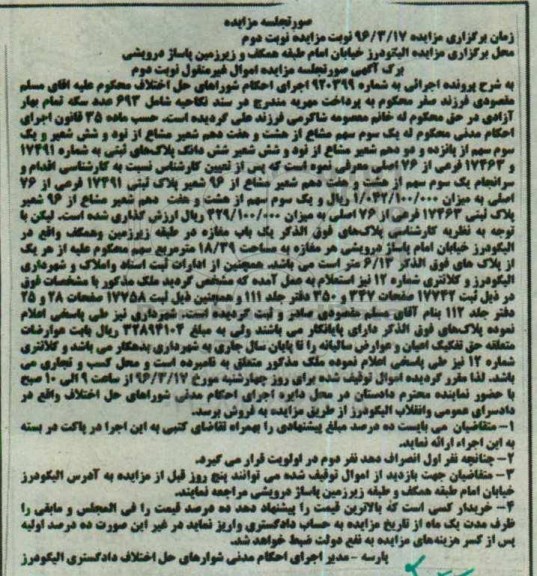 صورتجلسه مزایده
زمان برگزاری مزایده ۹۶/۳/۱۷ نوبت مزایده نوبت دوم
محل برگزاری مزایده الیگودرز خیابان امام طبقه همکف و زیرزمین پاساژ درویشی
برگ آگهی صورتجلسه مزایده اموال غیرمنقول نوبت دوم
به شرح پرونده اجرائی به شماره ۹۲۰۳۹۹ اجرای احکام شوراهای حل اختلاف محکوم علیه اقای مسلم
مقصودی فرزند سفر محکوم به پرداخت مهریه مندرج در سند نکاحیه شامل ۶۹۳ عدد سکه تمام بهار
آزادی در حق محکوم له خانم معصومه شاکرمی فرزند علی گردیده است. حسب ماده ۳۵ قانون اجرای
احکام مدنی محکوم له یک سوم سهم مزاده از هشت و هفت دهم شعیر مشاع از نود و شش شعیر و یک
سوم سهم از پانزده و دو دهم شعیر مشاع از نود و شش شعیر شش دانگ پلاک‌های ثبتی به شماره ۱۷۴۹۱
و ۱۷۴۶۳ فرعی از ۷۶ اصلی معرفی نموه است که پس از تعیین کارشناس نسبت به کارشناسی اقدام و
سرانجام یک سوم سهم از هشت و هفت دهم شعیر مشاع از ۹۶ شعیر پلاک ثبتی ۱۷۴۹۱ فرعی از ۷۶
اصلی به میزان ۱/۰۴۲/۱۰۰/۰۰۰ ریال و یک سوم سهم از هشت و هفت دهم شعیر مشاع از ۹۶ شعیر
پلاک ثبتی ۱۷۴۶۳ فرعی از ۷۶ اصلی به میزان ۴۲۹/۱۰۰/۰۰۰ ریال ارزش گذاری شده است. لیکن با
توجه به نظریه کارشناسی پلاک‌های فوق الذکر یک باب مغازه در طبقه زیرزمین وهمکف واقع در
الیگودرز خیابان امام پاساژ درویشی هر مغازه به مساحت ۱۸/۳۹ مترمربع سهم محکوم علیه از هر یک
از پلاک های فوق الذکر ۶/۱۳ متر است می باشد. همچنین از ادارات ثبت اسناد واملاک و شهرداری
الیگودرز و کلانتری شماره ۱۲ نیز استعلام به عمل آمده که مشخص گردید ملک مذکور با مشخصات فوق
در ذیل ثبت ۱۷۷۴۲ صفحات ۳۴۷ و ۳۵۰ دفتر جلد ۱۱۱ و همچنین ذیل ثبت ۱۷۷۵۸ صفحات ۲۸ و ۲۵
دفتر جلد ۱۱۲ بنام آقای مسلم مقصودی صادر و ثبت گردیده است. شهرداری نیز طی پاسخی اعلام
نموده پلاک‌های فوق الذکر دارای پایانکار می باشند ولی به مبلغ ۳۲۸۹۴۱۰۴ ریال بابت عوارضات
متعلقه حق تفکیک اعیان و عوارض سالیانه را تا پایان سال جاری به شهرداری بدهکار می باشد و کلانتری
شماره ۱۲ نیز طی پاسخی اعلام نموده ملک مذکور متعلق به نامبرده است و محل کسب و تجاری می
باشد. لذا مقرر گردیده اموال توقیف شده برای روز چهارشنبه مورخ ۹۶/۳/۱۷ از ساعت ۹ الی ۱۰ صبح
با حضور نماینده محترم دادستان در محل دایره اجرای احکام مدنی شوراهای حل اختلاف واقع در
دادسرای عمومی وانقلاب الیگودرز از طریق مزایده به فروش برسد.
۱- متقاضیان می بایست ده درصد مبلغ پیشنهادی را بهمراه تقاضای کتبی به این اجرا در پاکت در بسته
به این اجراء ارائه نماید.
۲- چنانچه نفر اول انصراف دهد نفر دوم در اولویت قرار می گیرد.
۳- متقاضیان جهت بازدید از اموال توقیف شده می توانند پنج روز قبل از مزایده به آدرس الیگودرز
خیابان امام طبقه همکف و طبقه زیرزمین پاساژ درویشی مراجعه نمایند.
۴- خریدار کسی است که بالاترین قیمت را پیشنهاد دهد ده درصد قیمت را فی المجلس و مابقی را
ظرف مدت یک ماه از تاریخ مزایده به حساب دادگستری واریز نماید در غیر این صورت ده درصد اولیه
پس از کسر هزینه‌های مزایده به نفع دولت ضبط خواهد شد.
پارسه - مدیر اجرای احکام مدنی شوارهای حل اختلاف دادگستری الیگودرز